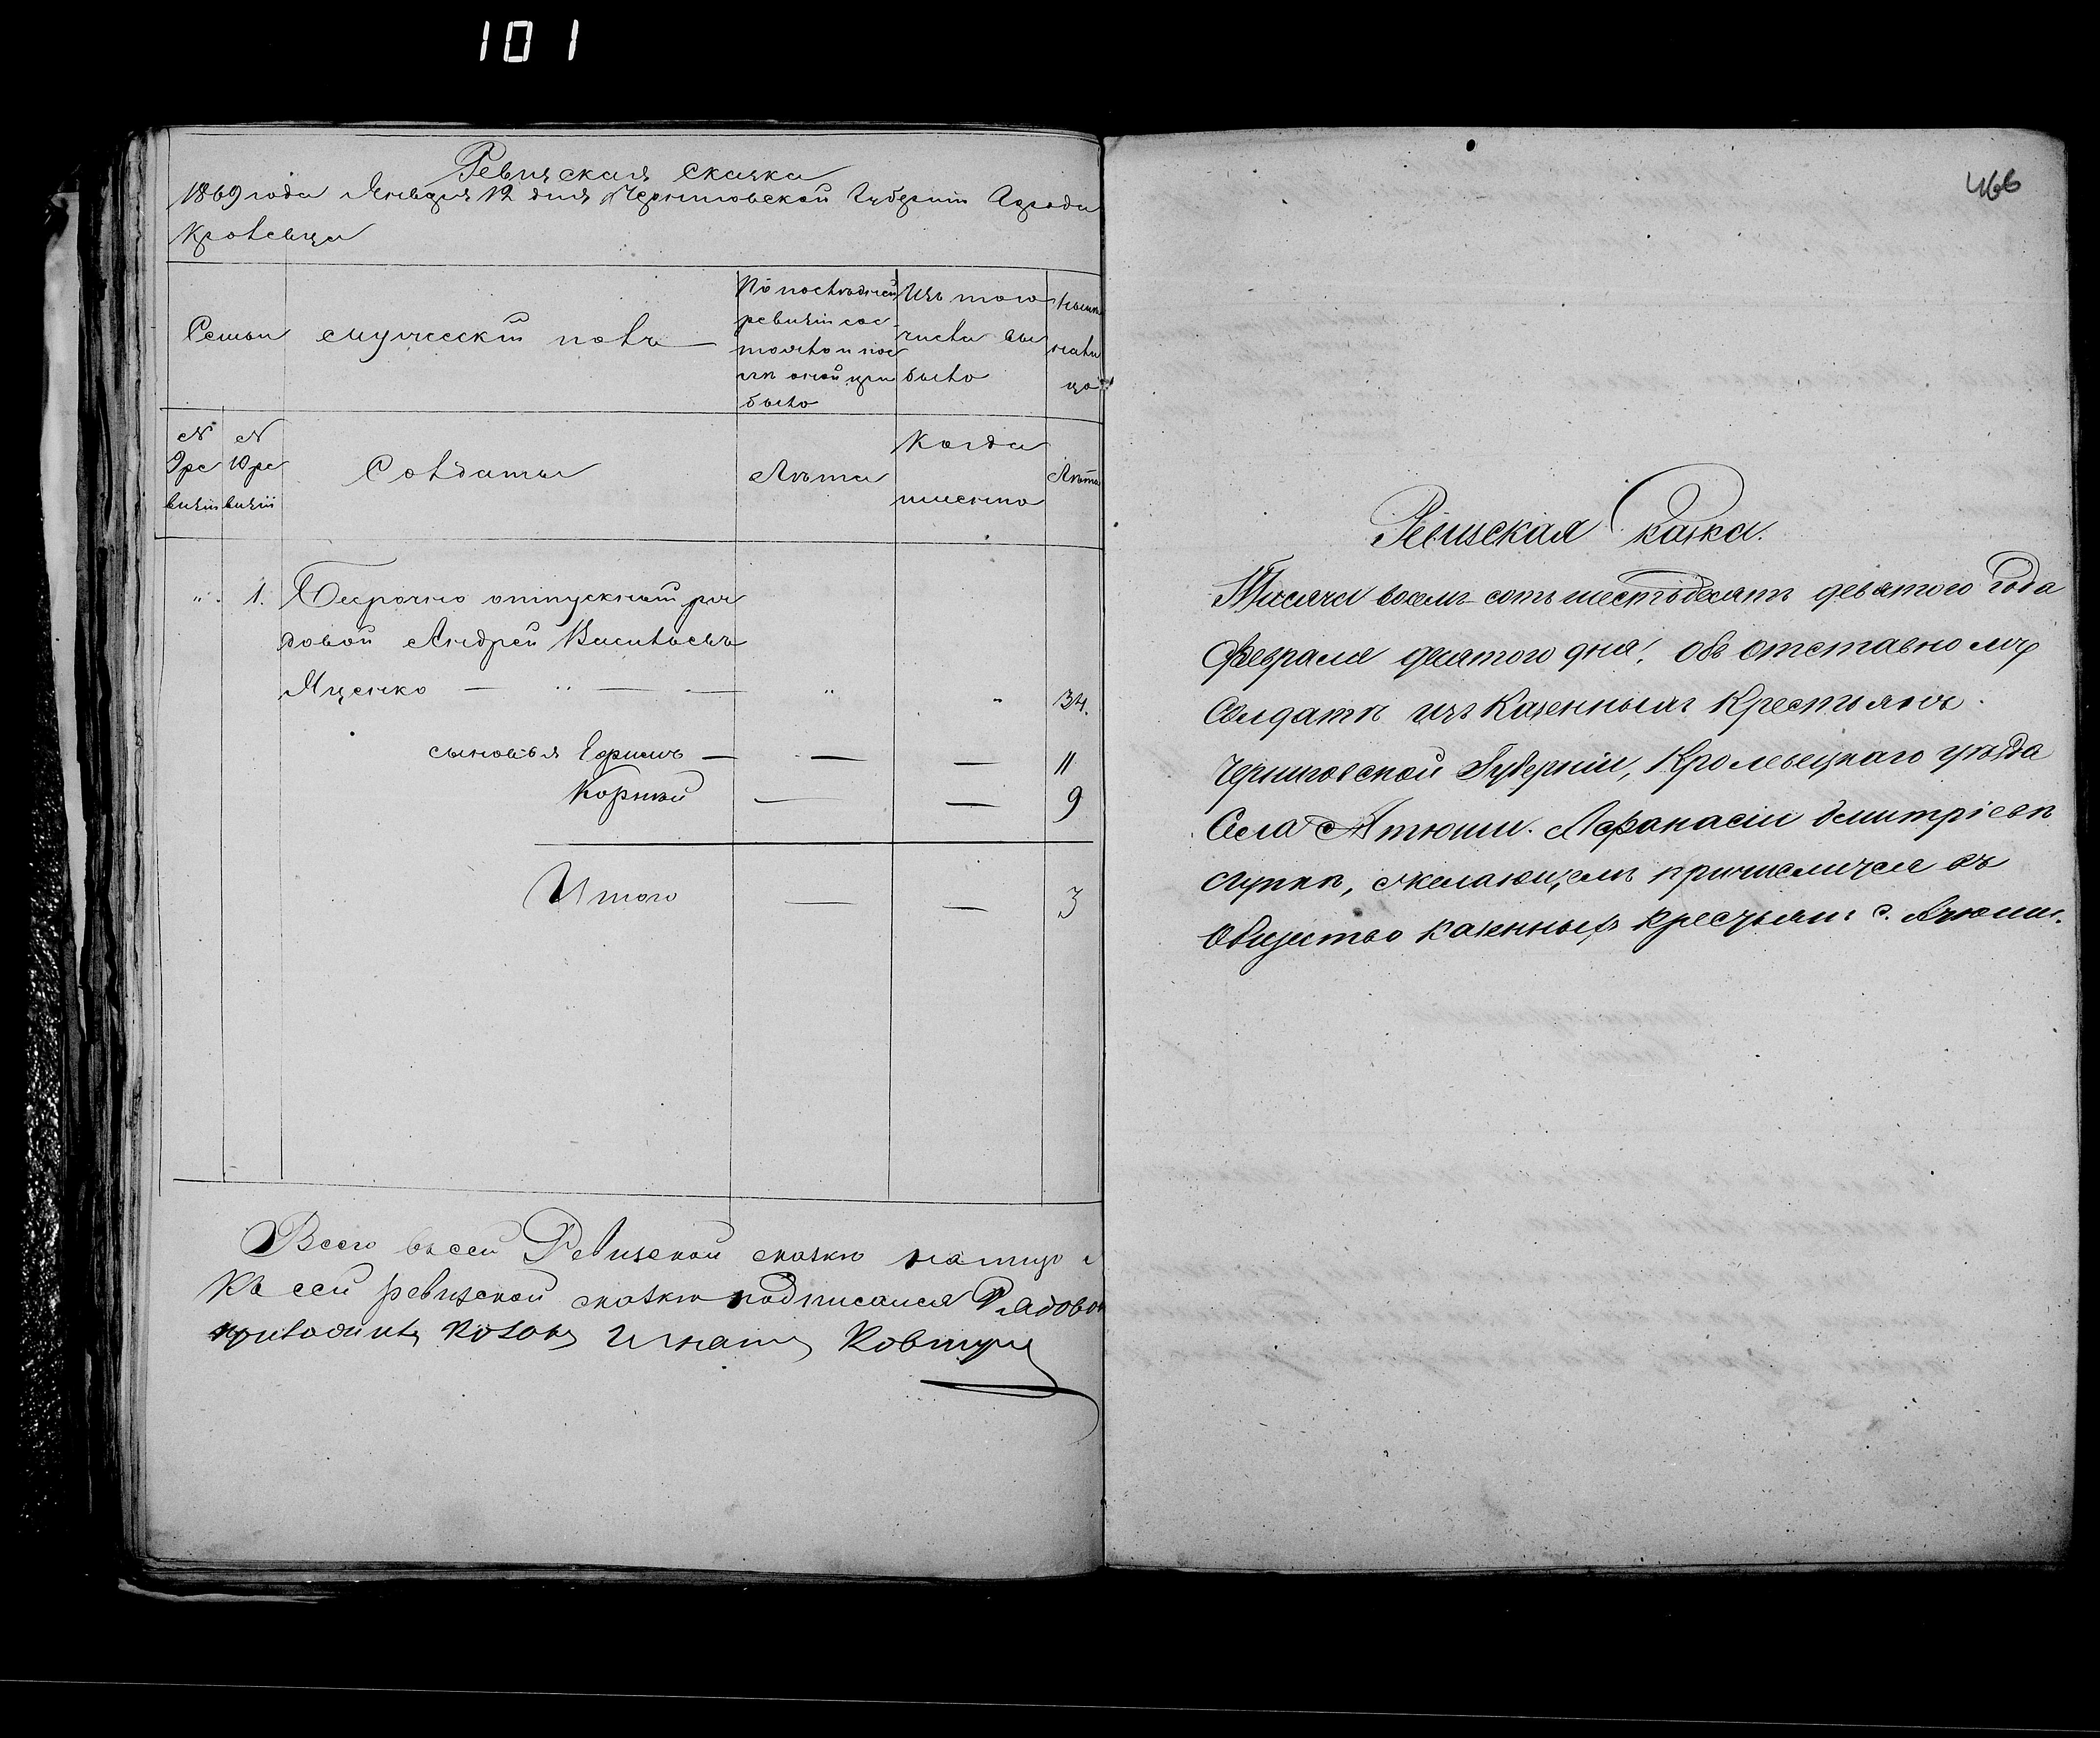 101
Ревизская сказка
1869 года Января 12 дня Черниговской Губерніи Города
Кролевца
Семьи мужескій полъ
По последней
ревизіи сос
тояло и пос
ле оной при
было
Изъ того
числа вы
было
Нынѣ
нали
цо
№ 9 ре визіи
№ 10 ре визіи
Солдаты
Лѣта
Когда
именно
Лѣта
" 1. Безсрочно отпускной ря
довой Андрей Васильевъ
Яценко — " — — " " 34.
сыновья Ефимъ — — — 11
Корнѣй — — 9
Итого — — 3
Всего въ сей Ревизской сказке налицо
Къ сей ревизской сказке подписался Рядовой
Козакъ Игнатъ Ковтунъ
466
Ревизская Сказка.
Тысяча восемъ сотъ шестьдесятъ девятого Года
Февраля десятого дня. Объ отставномъ
Солдатѣ изъ Казенныхъ Крестьянъ.
Черниговской Губерніи, Кролевецкаго уѣзда
Села Атюши. Афанасіи Дмитріевѣ
желающемъ причислится въ
Общество казенныхъ крестьянъ с. Атюши.